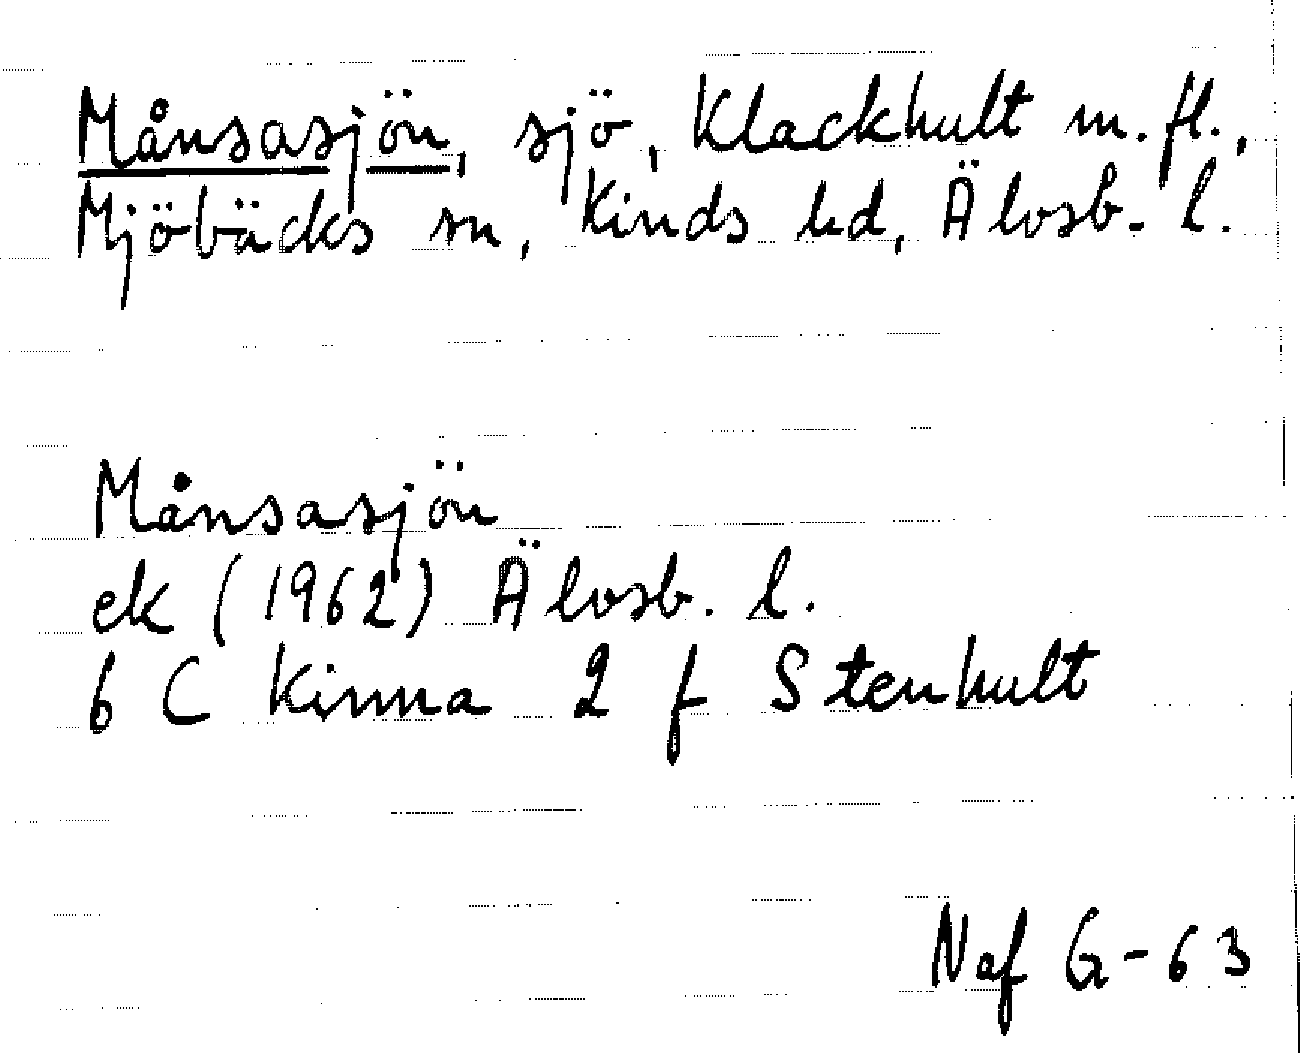 Månsasjön, sjö, Klackhult m. fl.,
Mjöbäcks sn, Kinds hd, Älvsb. l.
Månsasjön
ek (1962) Älvsb. l.
6 C Kinna 2 f Stenhult
Naf G-63